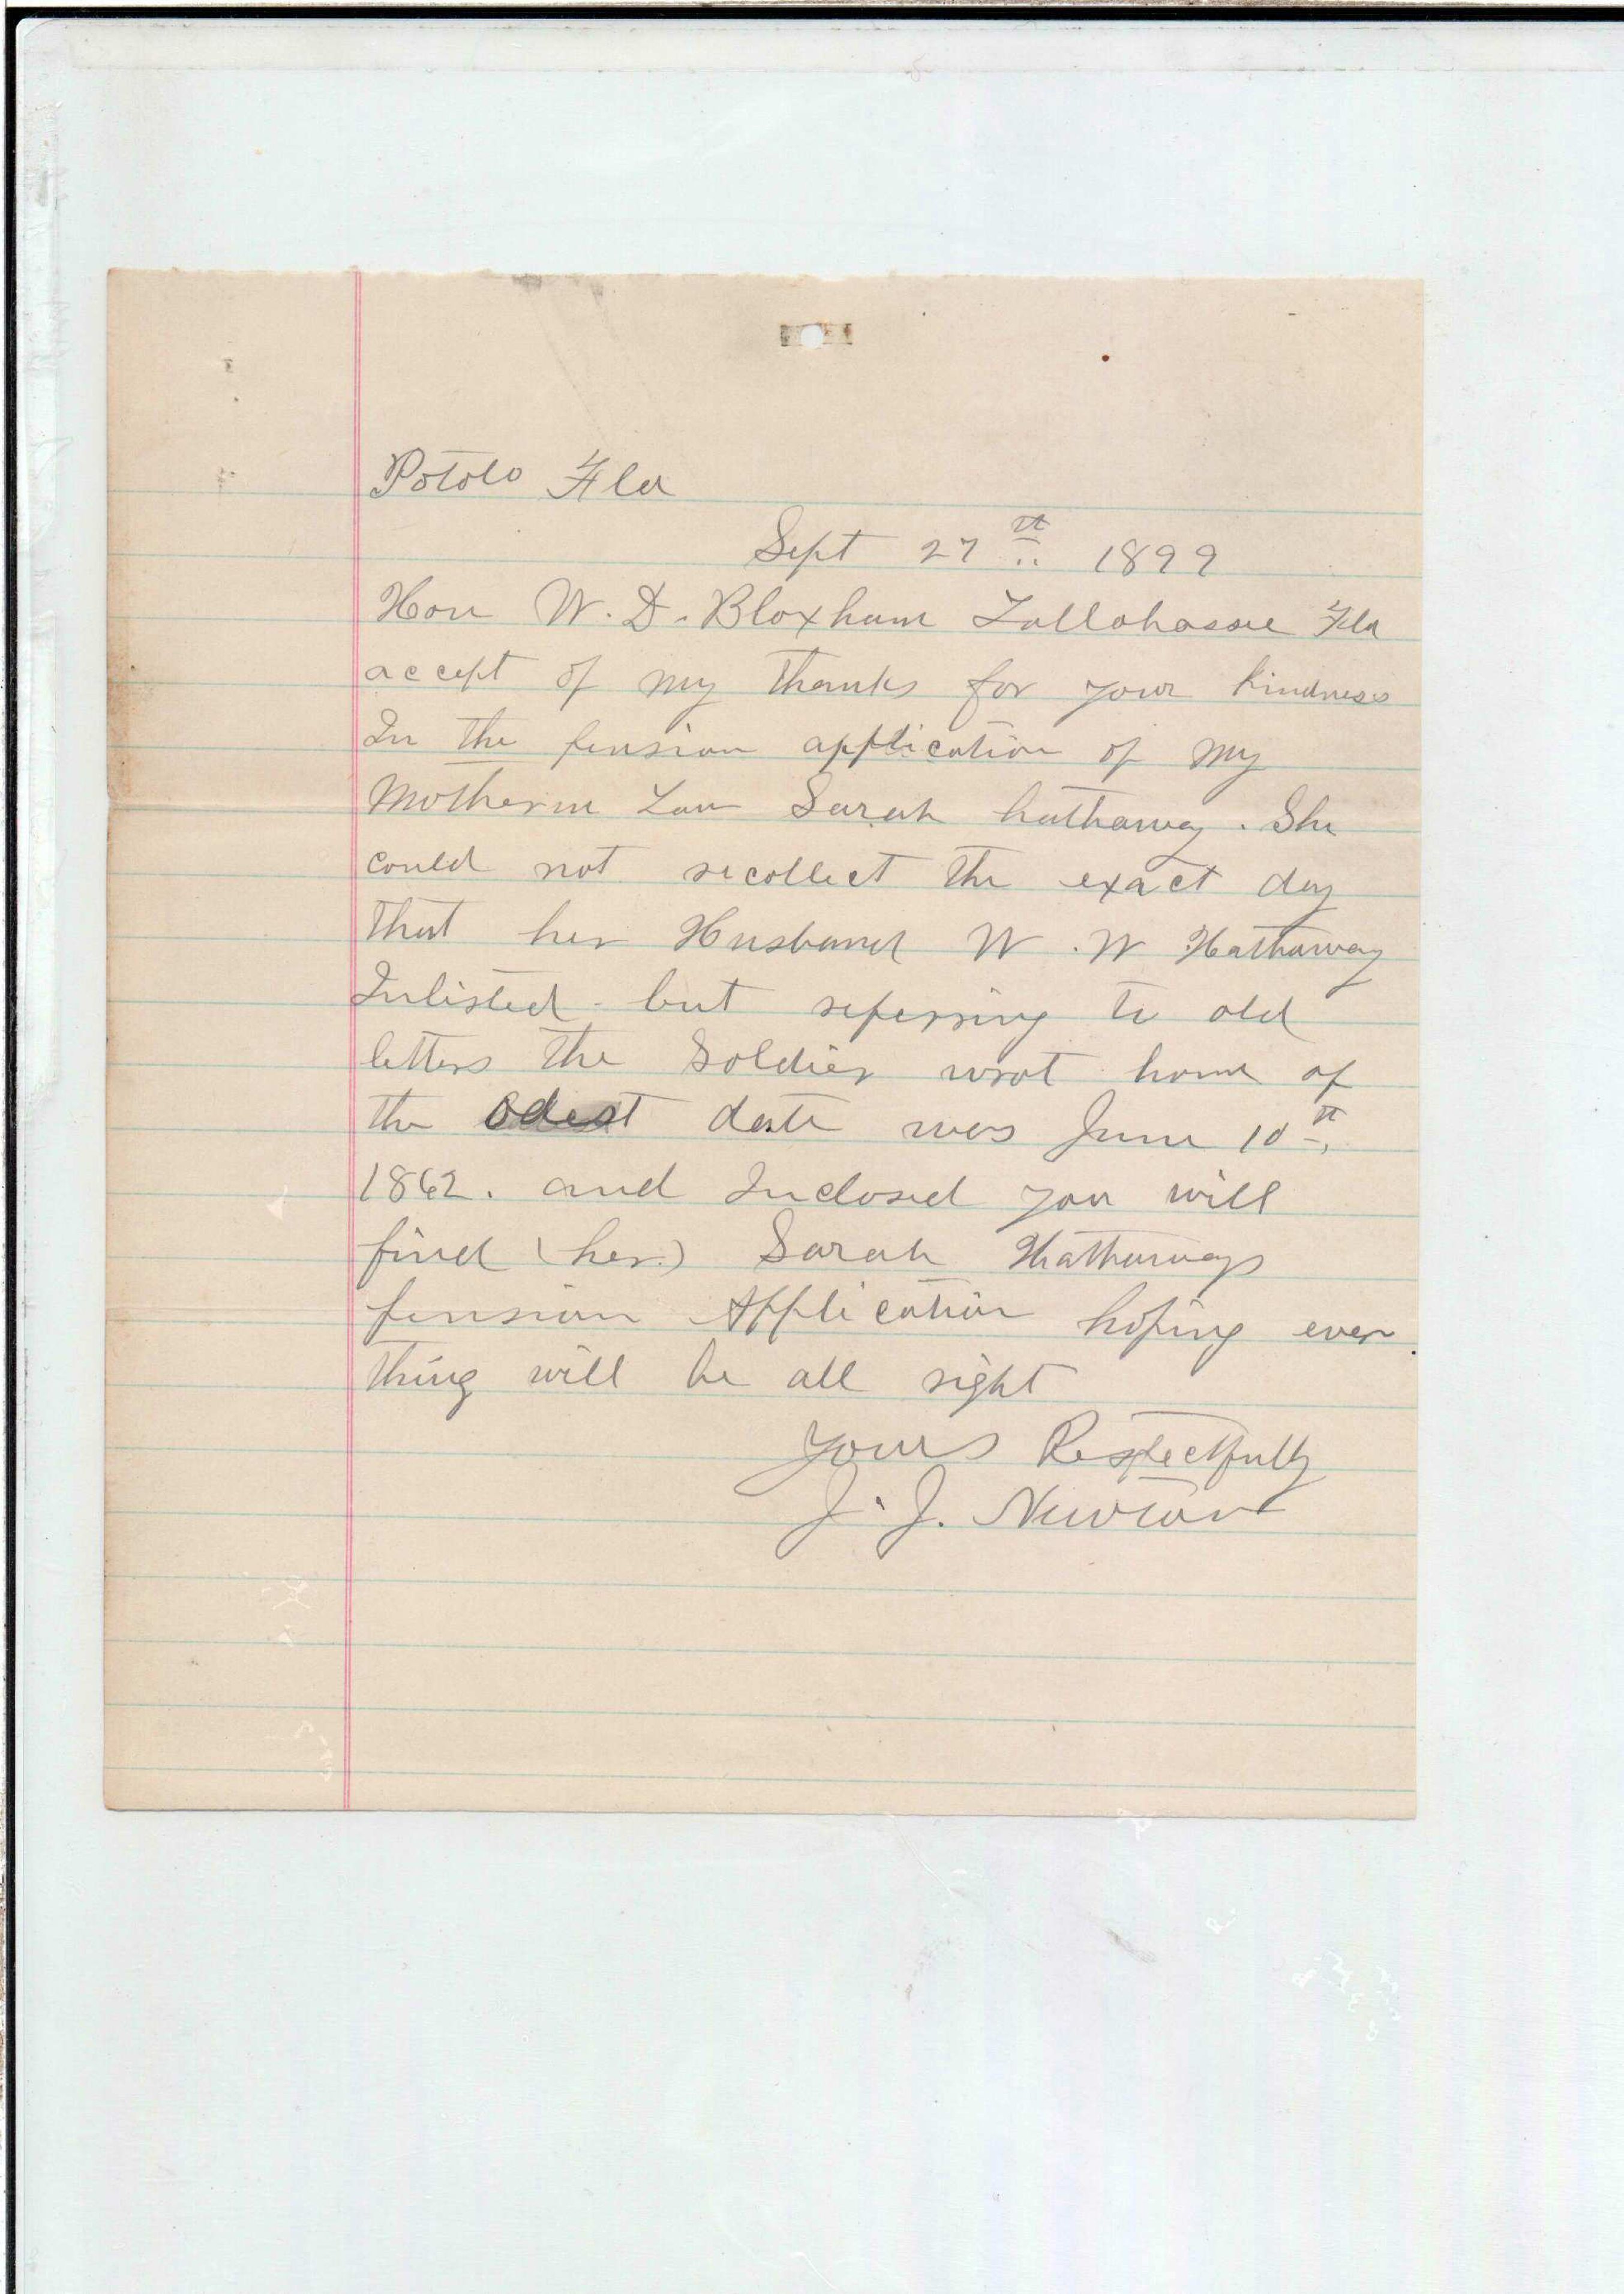 Potolo Fla
Sept 27th 1899
Hon W. D. Bloxham Tallahassee Fla
accept of my thanks for your kindness
In the pension application of my
Motherin Law Sarah hathaway. She
could not recollect the exact day
that her Husband W. W Hathaway
Inlisted - but referring to old
letters the Soldier wrot home of
the odest date was June 10th
1862. and Inclosed you will
find (her) Sarah Hathaways
pension Application hoping ever
thing will be all right
Yours Respectfully
J. J. Newton